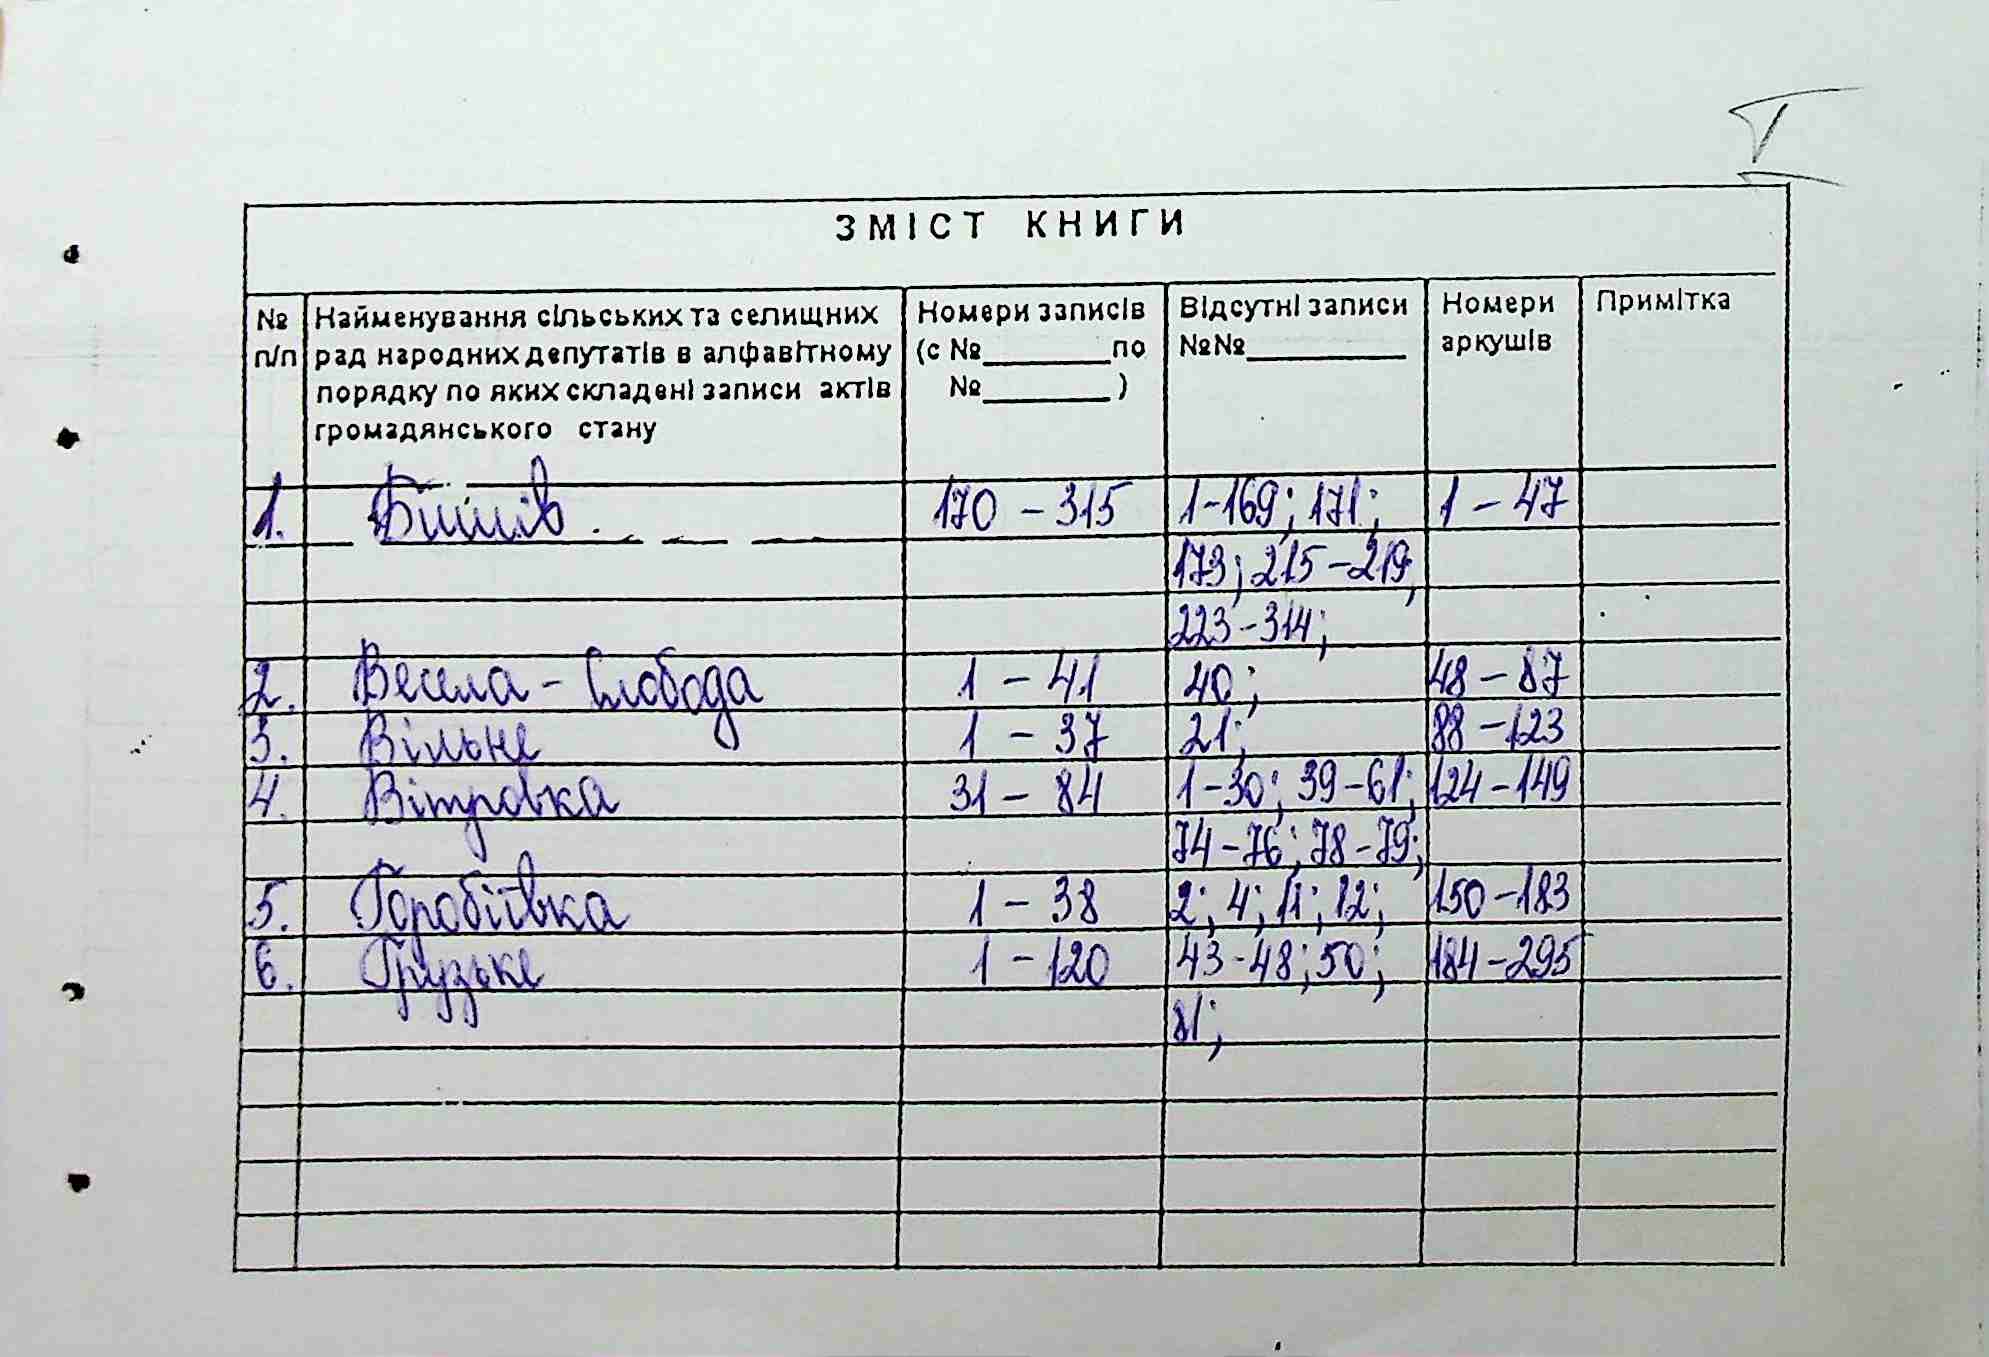 I
ЗМІСТ КНИГИ
№ п/п
Найменування сільських та селищних
рад народних депутатів в алфавітному
порядку по яких складені записи актів
громадянського стану
Номери записів
(с №________по
№________)
Відсутні записи
№№__________
Номери
аркушів
Примітка
1. Бишів 170 – 315 1-169; 171; 1 – 47
173; 215-219;
223-314;
2. Весела - Слобода 1 – 41 40; 48 – 87
3. Вільне 1 – 37 21; 88 – 123
4. Вітровка 31 – 84 1-30; 39-61; 124-149
74-76; 78-79;
5. Горобіївка 1 – 38 2; 4; 11; 12; 150-183
6. Грузьке 1 – 120 43-48; 50; 184-295
81;